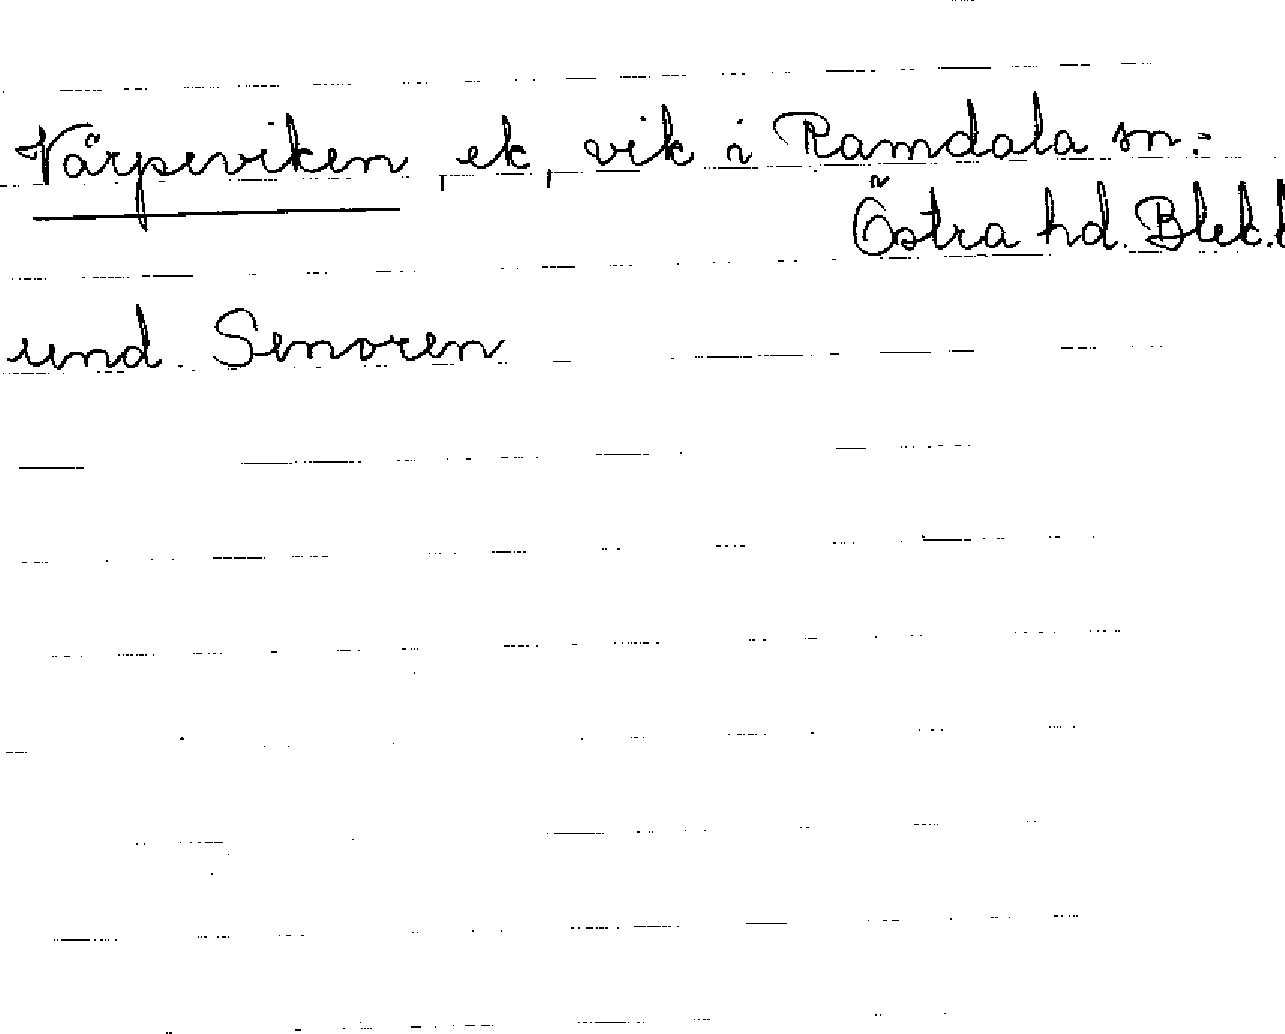 Värpeviken, ek, vik i Ramdala sn.
Östra hd. Blek.l
und. Senoren